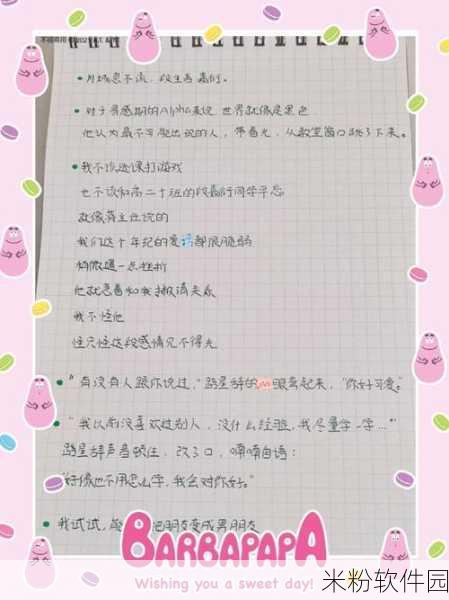 • 月球悬不流，段生为嘉衍。
• 对于易感期的Alpha来说 世界就像是黑色
他认为最不可能出现的人，带着光，从教室窗口跳了下来。
• 我不该逃课打游戏
也不该和高二十班的段嘉衍同学早恋
就像蒋主任说的
我们这个年纪的爱情都很脆弱
稍微遇一点挫折
他就想着和我撇清关系
我不怪他
怪只怪这段感情见不得光
• "有没有人跟你说过，"路星辞的眼弯起来，"你好可爱。"
• "我以前没喜欢过别人，没什么经验，我尽量学一学…"
路星辞声音顿住，改了口，喃喃自语：
"好像也不用怎么学，我会对你好。"
• 我试试，能 把朋友变成男朋友
BARBAPAPA
Wishing you a sweet day!
米粉软件园